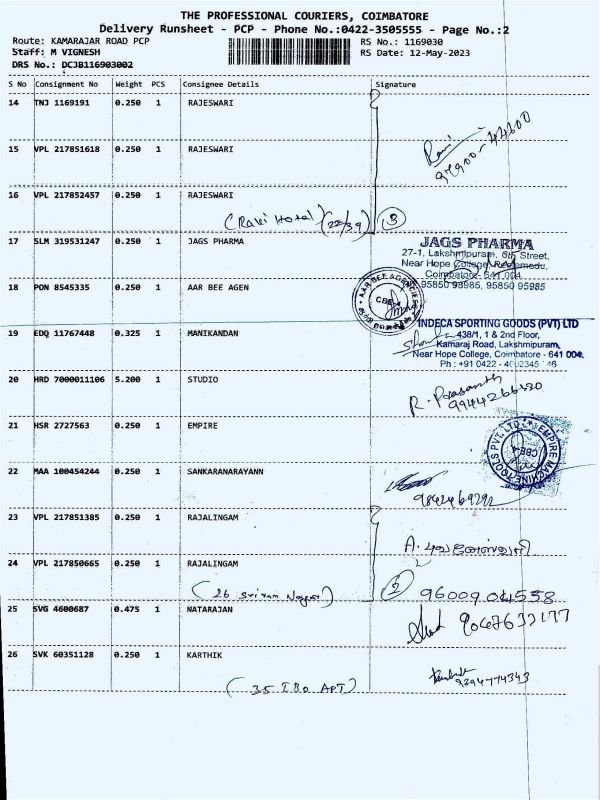 THE PROFESSIONAL COURIERS, COIMBATORE
Delivery Runsheet - PCP - Phone No.:0422-3505555 - Page No.:2
Route: KAMARAJAR ROAD PCP
RS No.: 1169030
Staff: M VIGNESH
RS Date: 12-May-2023
DRS No.: DCJB116903002
S No Consignment No Weight PCS Consignee Details Signature
14 TNJ 1169191 0.250 1 RAJESWARI
15 VPL 217851618 0.250 1 RAJESWARI
Ravi
16 VPL 217852457 0.250 1 RAJESWARI
(Ravi Hotel) (22/39) 3
17 SLM 319531247 0.250 1 JAGS PHARMA
JAGS PHARMA
27-1, Lakshmipuram, 6th Street,
Near Hope College, Peelamedu,
Coimbatore - 641 004.
95850 98985, 95850 95985
18 PON 8545335 0.250 1 AAR BEE AGEN
AAR BEE AGENCIES
CBE-4
19 EDQ 11767448 0.325 1 MANIKANDAN
INDECA SPORTING GOODS (PVT) LTD
438/1, 1 & 2nd Floor,
Kamaraj Road, Lakshmipuram,
Near Hope College, Coimbatore - 641 004.
Ph : +91 0422 -
20 HRD 7000011106 5.200 1 STUDIO
R. Prasanth
9944266530
21 HSR 2727563 0.250 1 EMPIRE
EMPIRE MACHINE TOOLS PVT. LTD.
CBE-4
22 MAA 100454244 0.250 1 SANKARANARAYANN
9842469292
23 VPL 217851385 0.250 1 RAJALINGAM
24 VPL 217850665 0.250 1 RAJALINGAM
(26 Sri ram Nagar) 2 9600904558
25 SVG 4600687 0.475 1 NATARAJAN
26 SVK 60351128 0.250 1 KARTHIK
9294774343
(35 IBO APT)